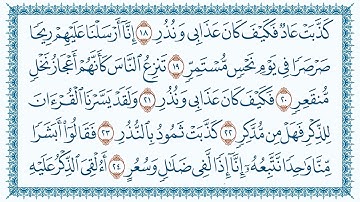 كَذَّبَتْ عَادٌ فَكَيْفَ كَانَ عَذَابِى وَنُذُرِ ١٨ إِنَّآ أَرْسَلْنَا عَلَيْهِمْ رِيحًا
صَرْصَرًا فِى يَوْمِ نَحْسٍ مُّسْتَمِرٍّ ١٩ تَنزِعُ ٱلنَّاسَ كَأَنَّهُمْ أَعْجَازُ نَخْلٍ
مُّنقَعِرٍ ٢٠ فَكَيْفَ كَانَ عَذَابِى وَنُذُرِ ٢١ وَلَقَدْ يَسَّرْنَا ٱلْقُرْءَانَ
لِلذِّكْرِ فَهَلْ مِن مُّدَّكِرٍ ٢٢ كَذَّبَتْ ثَمُودُ بِٱلنُّذُرِ ٢٣ فَقَالُوٓا۟ أَبَشَرًا
مِّنَّا وَٰحِدًا نَّتَّبِعُهُۥٓ إِنَّآ إِذًا لَّفِى ضَلَٰلٍ وَسُعُرٍ ٢٤ أَءُلْقِىَ ٱلذِّكْرُ عَلَيْهِ